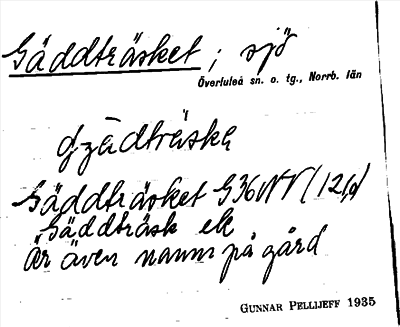 Gäddträsket ; sjö
Överluleå sn. o. tg., Norrb. län
Gäddträsket G36NV
Gäddträsk ek
Är även namn på gård
GUNNAR PELLIJEFF 1935